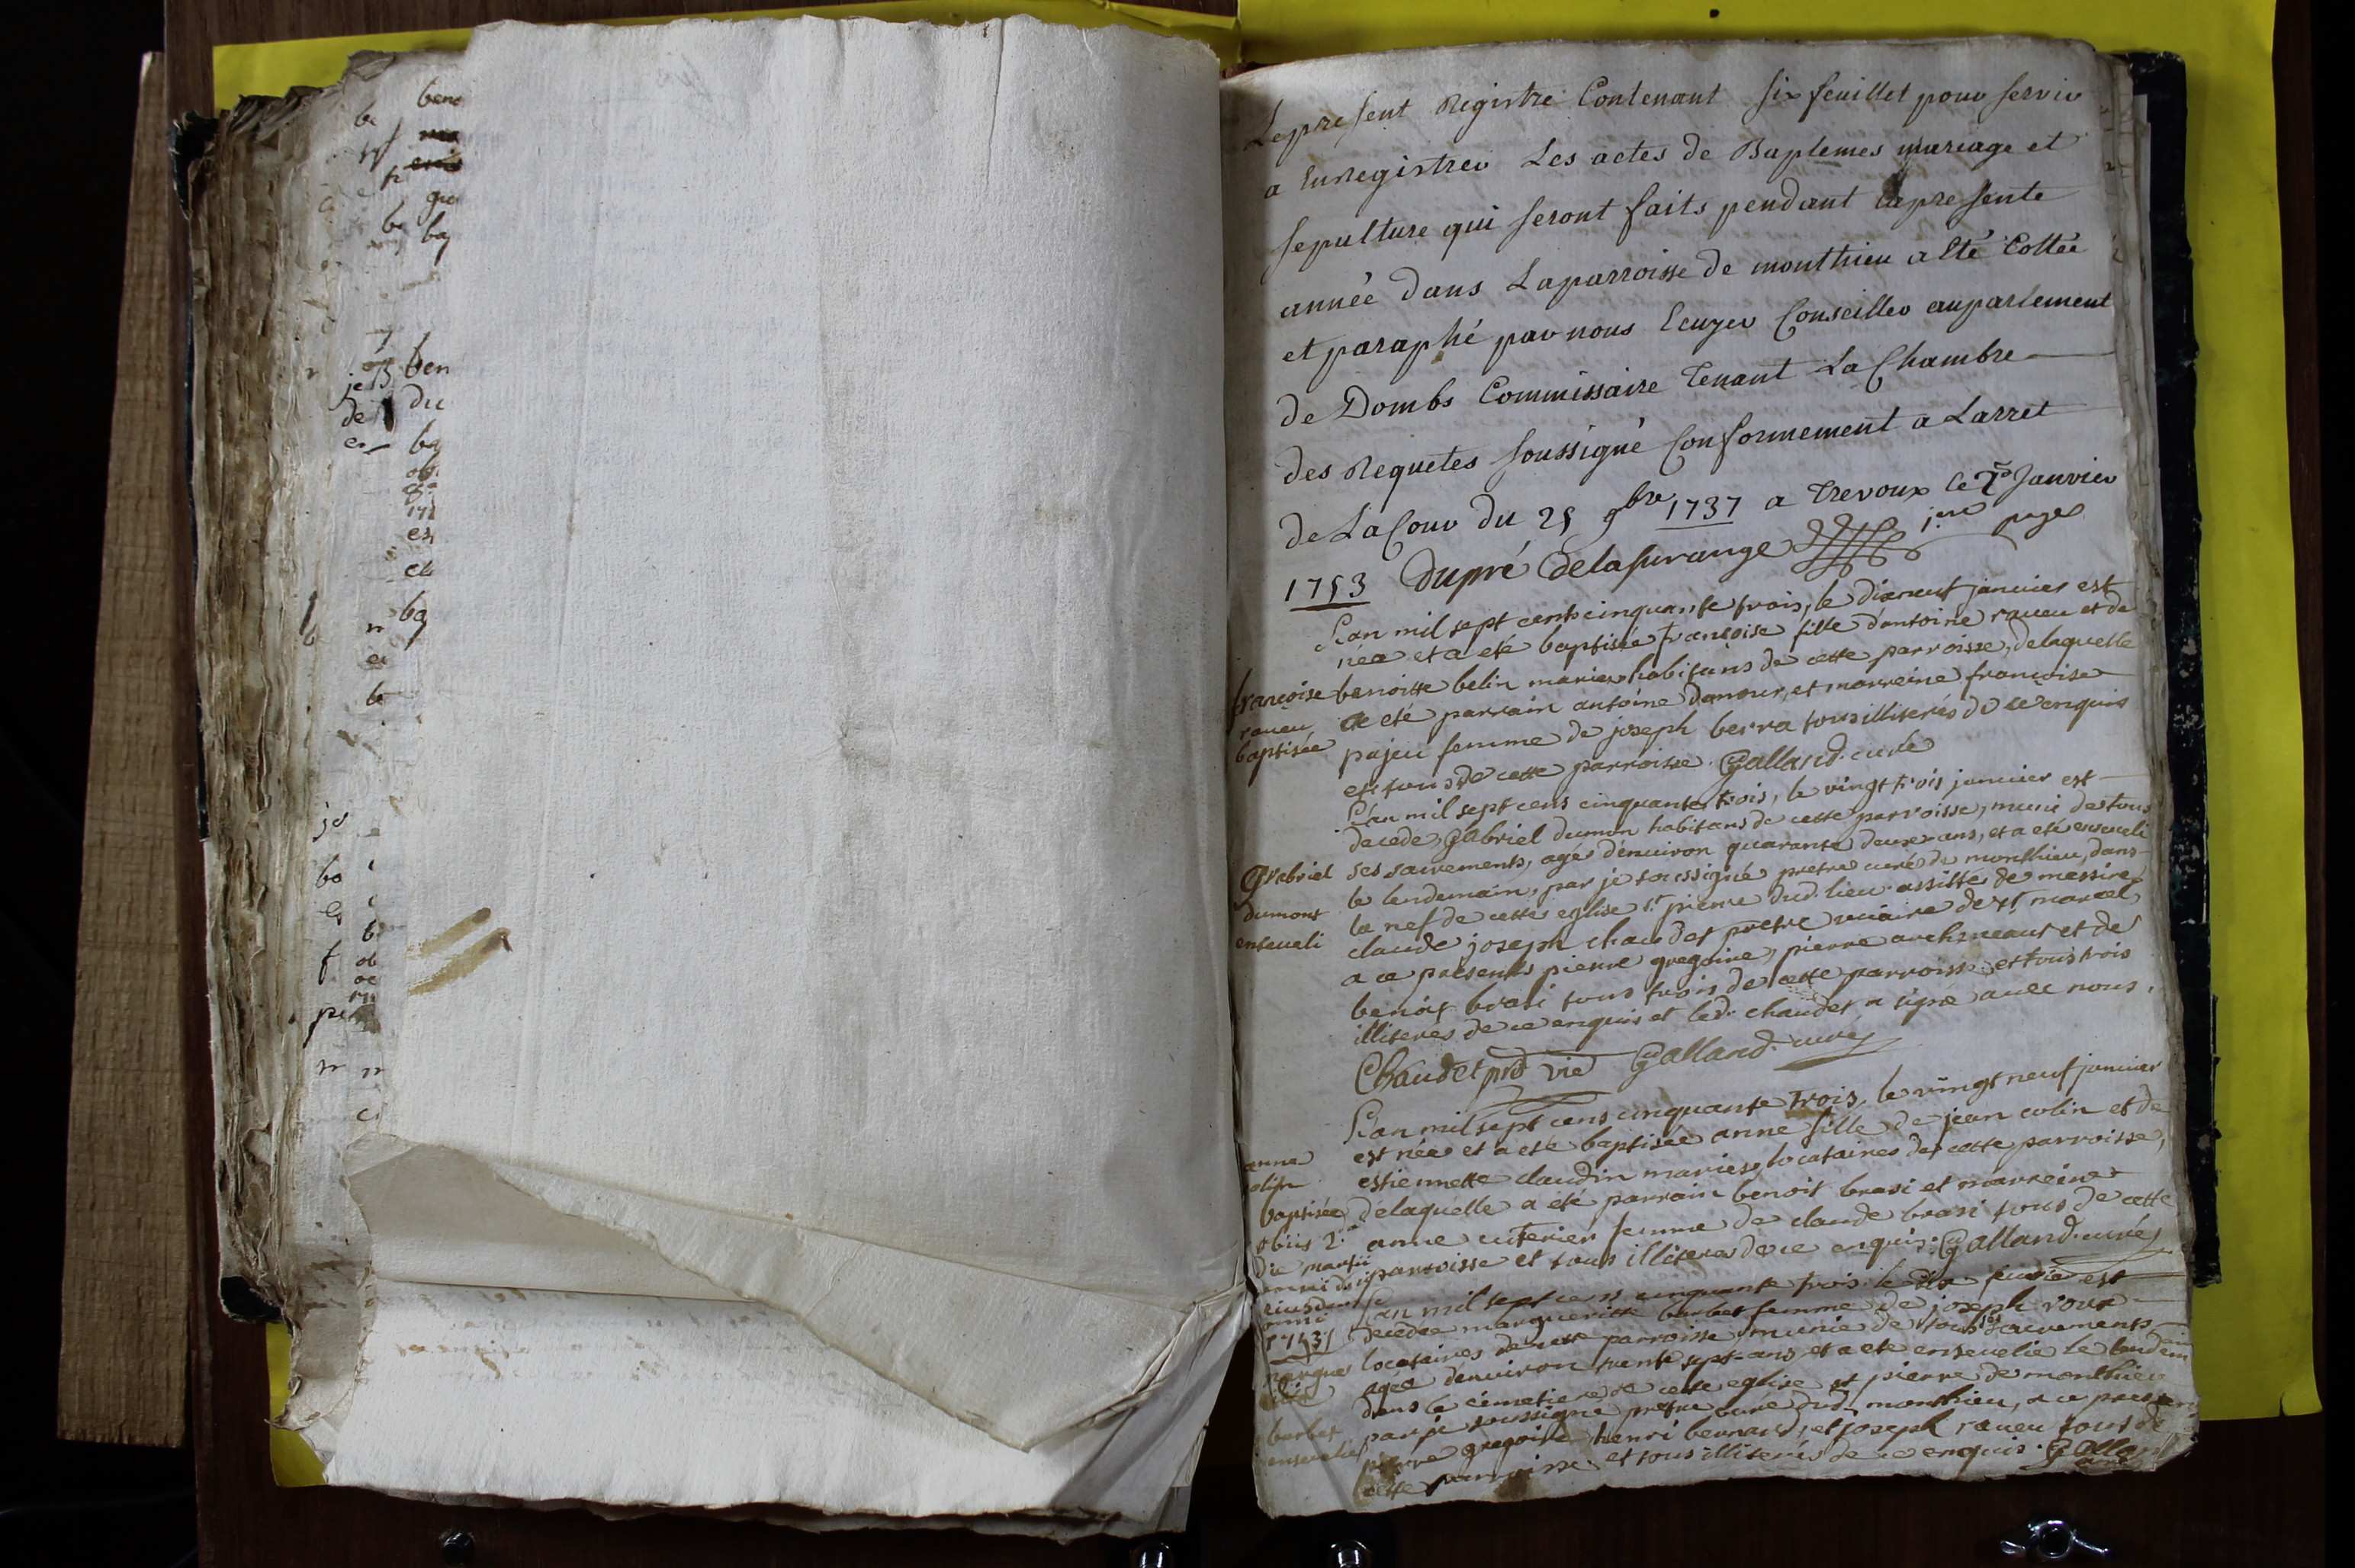 Le present Registre Contenant six feuillet pour servir
a Enregistrer Les actes de Baptemes mariage et
sepulture qui seront faits pendant la presente
année dans La parroisse de monthieu a Eté Cottée
et paraphé par nous Ecuyer Conseiller au parlement
de Dombs Commissaire Tenant La Chambre
des Requetes soussigné Conformement a Larret
de La Cour du 25 9bre 1737 a Trevoux Le Janvier
1753 Dupré Delasurange 1ere page
L'an mil sept cents cinquante trois, le dixneuf janvier est
née et a eté baptisée françoise fille d'antoine raueu et de
françoise benoitte belin mariez habitans de cette parroisse, de laquelle
raueu a eté parrain antoine Damour, et marreine françoise
baptisée pajeu femme de joseph berra tous illiterés de ce enquis
et tous de cette parroisse. Galland curé
L'an mil sept cens cinquante trois, le vingt trois janvier est
decedé Gabriel dumon habitans de cette parroisse, muni de tous
Gabriel ses sacrements, agé d'enuiron quarante deux ans, et a eté enseueli
le lendemain, par je soussigné pretre curé de monthieu, dans
dumont la nef de cette eglise st pierre dud. lieu assisté de messire
enseueli claude joseph chaudet prêtre vicaire de st marcel,
a ce presents pierre gregoire, pierre et de
benoit brasi tous trois de cette parroisse et tous trois
illiteres de ce enquis et led. chaudet a signé auec nous.
Chaudet prê vic Galland. curé
L'an mil sept cens cinquante trois, le vingt neuf janvier
anne est née et a eté baptisée anne fille de jean colin et de
olin estiennette claudin mariez, locataires de cette parroisse,
baptisée de laquelle a eté parrain benoit brasi et marreine
obiit 2a anne cuterier femme de claude brasi tous de cette
die martii parroisse et tous illiteres de ce enquis. Galland. curé
L'an mil sept cens cinquante trois le dix est
1753 decedée margueritte barbet femme de joseph roux
locataires de cette parroisse munie de tous ses sacrements
agée d'enuiron trente sept ans et a eté enseuelie le lendemin
dans le cimetiere de cette eglise st pierre de monthieu
barbet par je soussigné pretre curé dud. monthieu, a ce presens
enseuelie pierre gregoire, henri bernard, et joseph raueu tous de
cette parroisse et tous illiterés de ce enquis. Galland